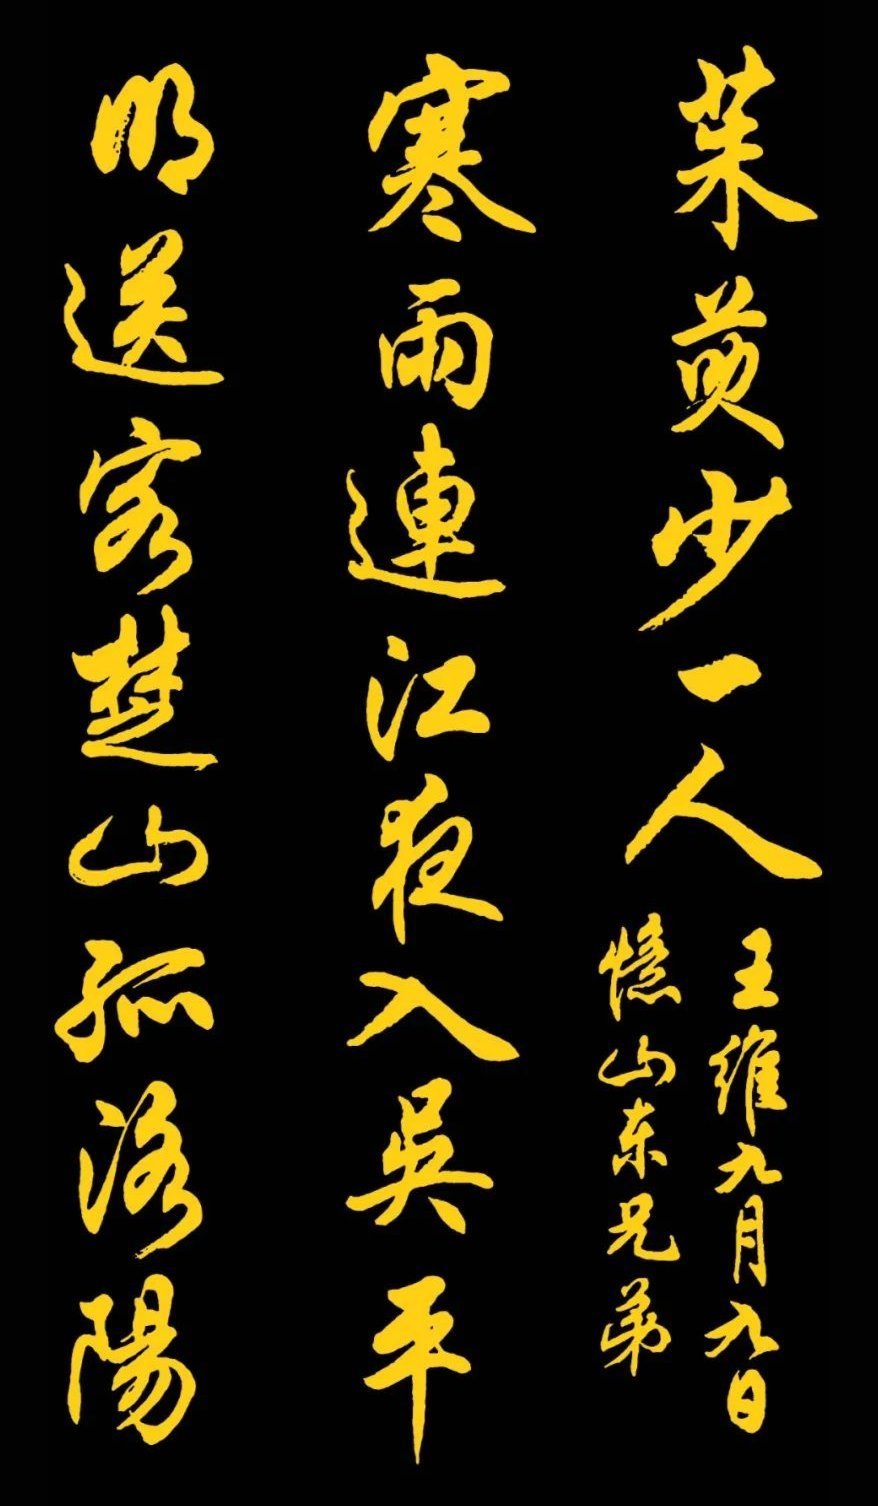 茱萸少一人
王维九月九日
憶山东兄弟
寒雨連江夜入吳平
明送客楚山孤洛陽